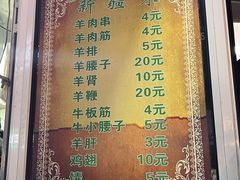 新疆
羊肉串 4元
羊肉筋 4元
羊排 5元
羊腰子 20元
羊肾 10元
羊鞭 20元
牛板筋 4元
牛小腰子 5元
羊肝 3元
鸡翅 10元
馕 5元